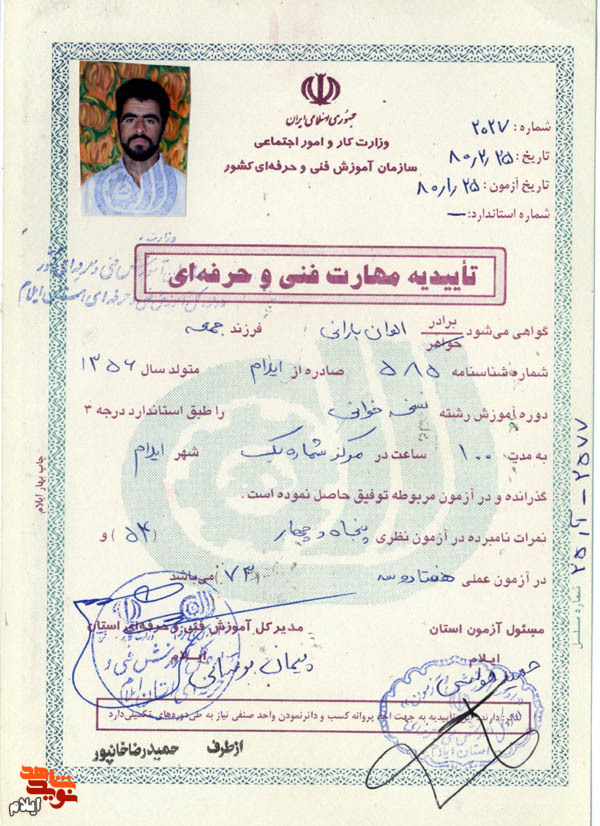 جمهوری اسلامی ایران
وزارت کار و امور اجتماعی
سازمان آموزش فنی و حرفه‌ای کشور
شماره: ۲۰۲۷
تاریخ: ۸۰,۲,۲۵
تاریخ آزمون: ۸۰,۱,۲۵
شماره استاندارد: —
تأییدیه مهارت فنی و حرفه‌ای
گواهی می‌شود برادر خواهر الوان بارانی فرزند جمعه
شماره شناسنامه ۵۸۵ صادره از ایلام متولد سال ۱۳۵۶
دوره آموزش رشته نسخه خوانی را طبق استاندارد درجه ۳
به مدت ۱۰۰ ساعت در مرکز شماره یک شهر ایلام
گذرانده و در آزمون مربوطه توفیق حاصل نموده است.
نمرات نامبرده در آزمون نظری پنجاه و چهار (۵۴) و
در آزمون عملی هفتاد و سه (۷۳) می‌باشد
مسئول آزمون استان
ایلام
مدیر کل آموزش فنی و حرفه‌ای استان
ایلام
این تأییدیه به جهت اخذ پروانه کسب و دائر نمودن واحد صنفی نیاز به طی دوره‌های تکمیلی دارد
از طرف حمیدرضا خانپور
چاپ بهار ایلام
شماره مسلسل
نوید شاهد
ایلام